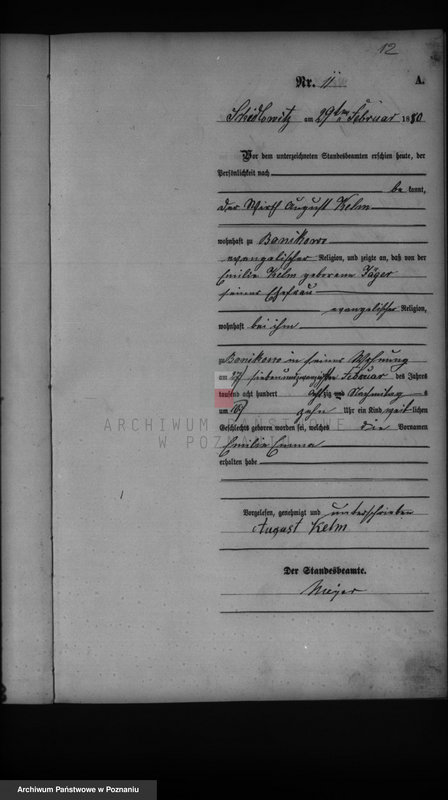 12
Nr. 11
A.
Schidlowitz am 29ten Februar 1880
Vor dem unterzeichneten Standesbeamten erschien heute, der
Persönlichkeit nach
be kannt,
der Wirth August Kelm
wohnhaft zu Banikowo
evangelischer Religion, und zeigte an, daß von der
Emilie Kelm geborene Jäger
seiner Ehefrau
evangelischer Religion,
wohnhaft bei ihm
zu Banikowo in seiner Wohnung
am 27 siebenundzwanzigsten Februar des Jahres
tausend acht hundert achtzig Nachmittag
um 10 zehn Uhr ein Kind weiblichen
Geschlechts geboren worden sei, welches die Vornamen
Emilie Emma
erhalten habe
ARCHIWUM PAŃSTWOWE
W POZNANIU
Vorgelesen, genehmigt und unterschrieben
August Kelm
Der Standesbeamte.
Meyer
Archiwum Państwowe w Poznaniu